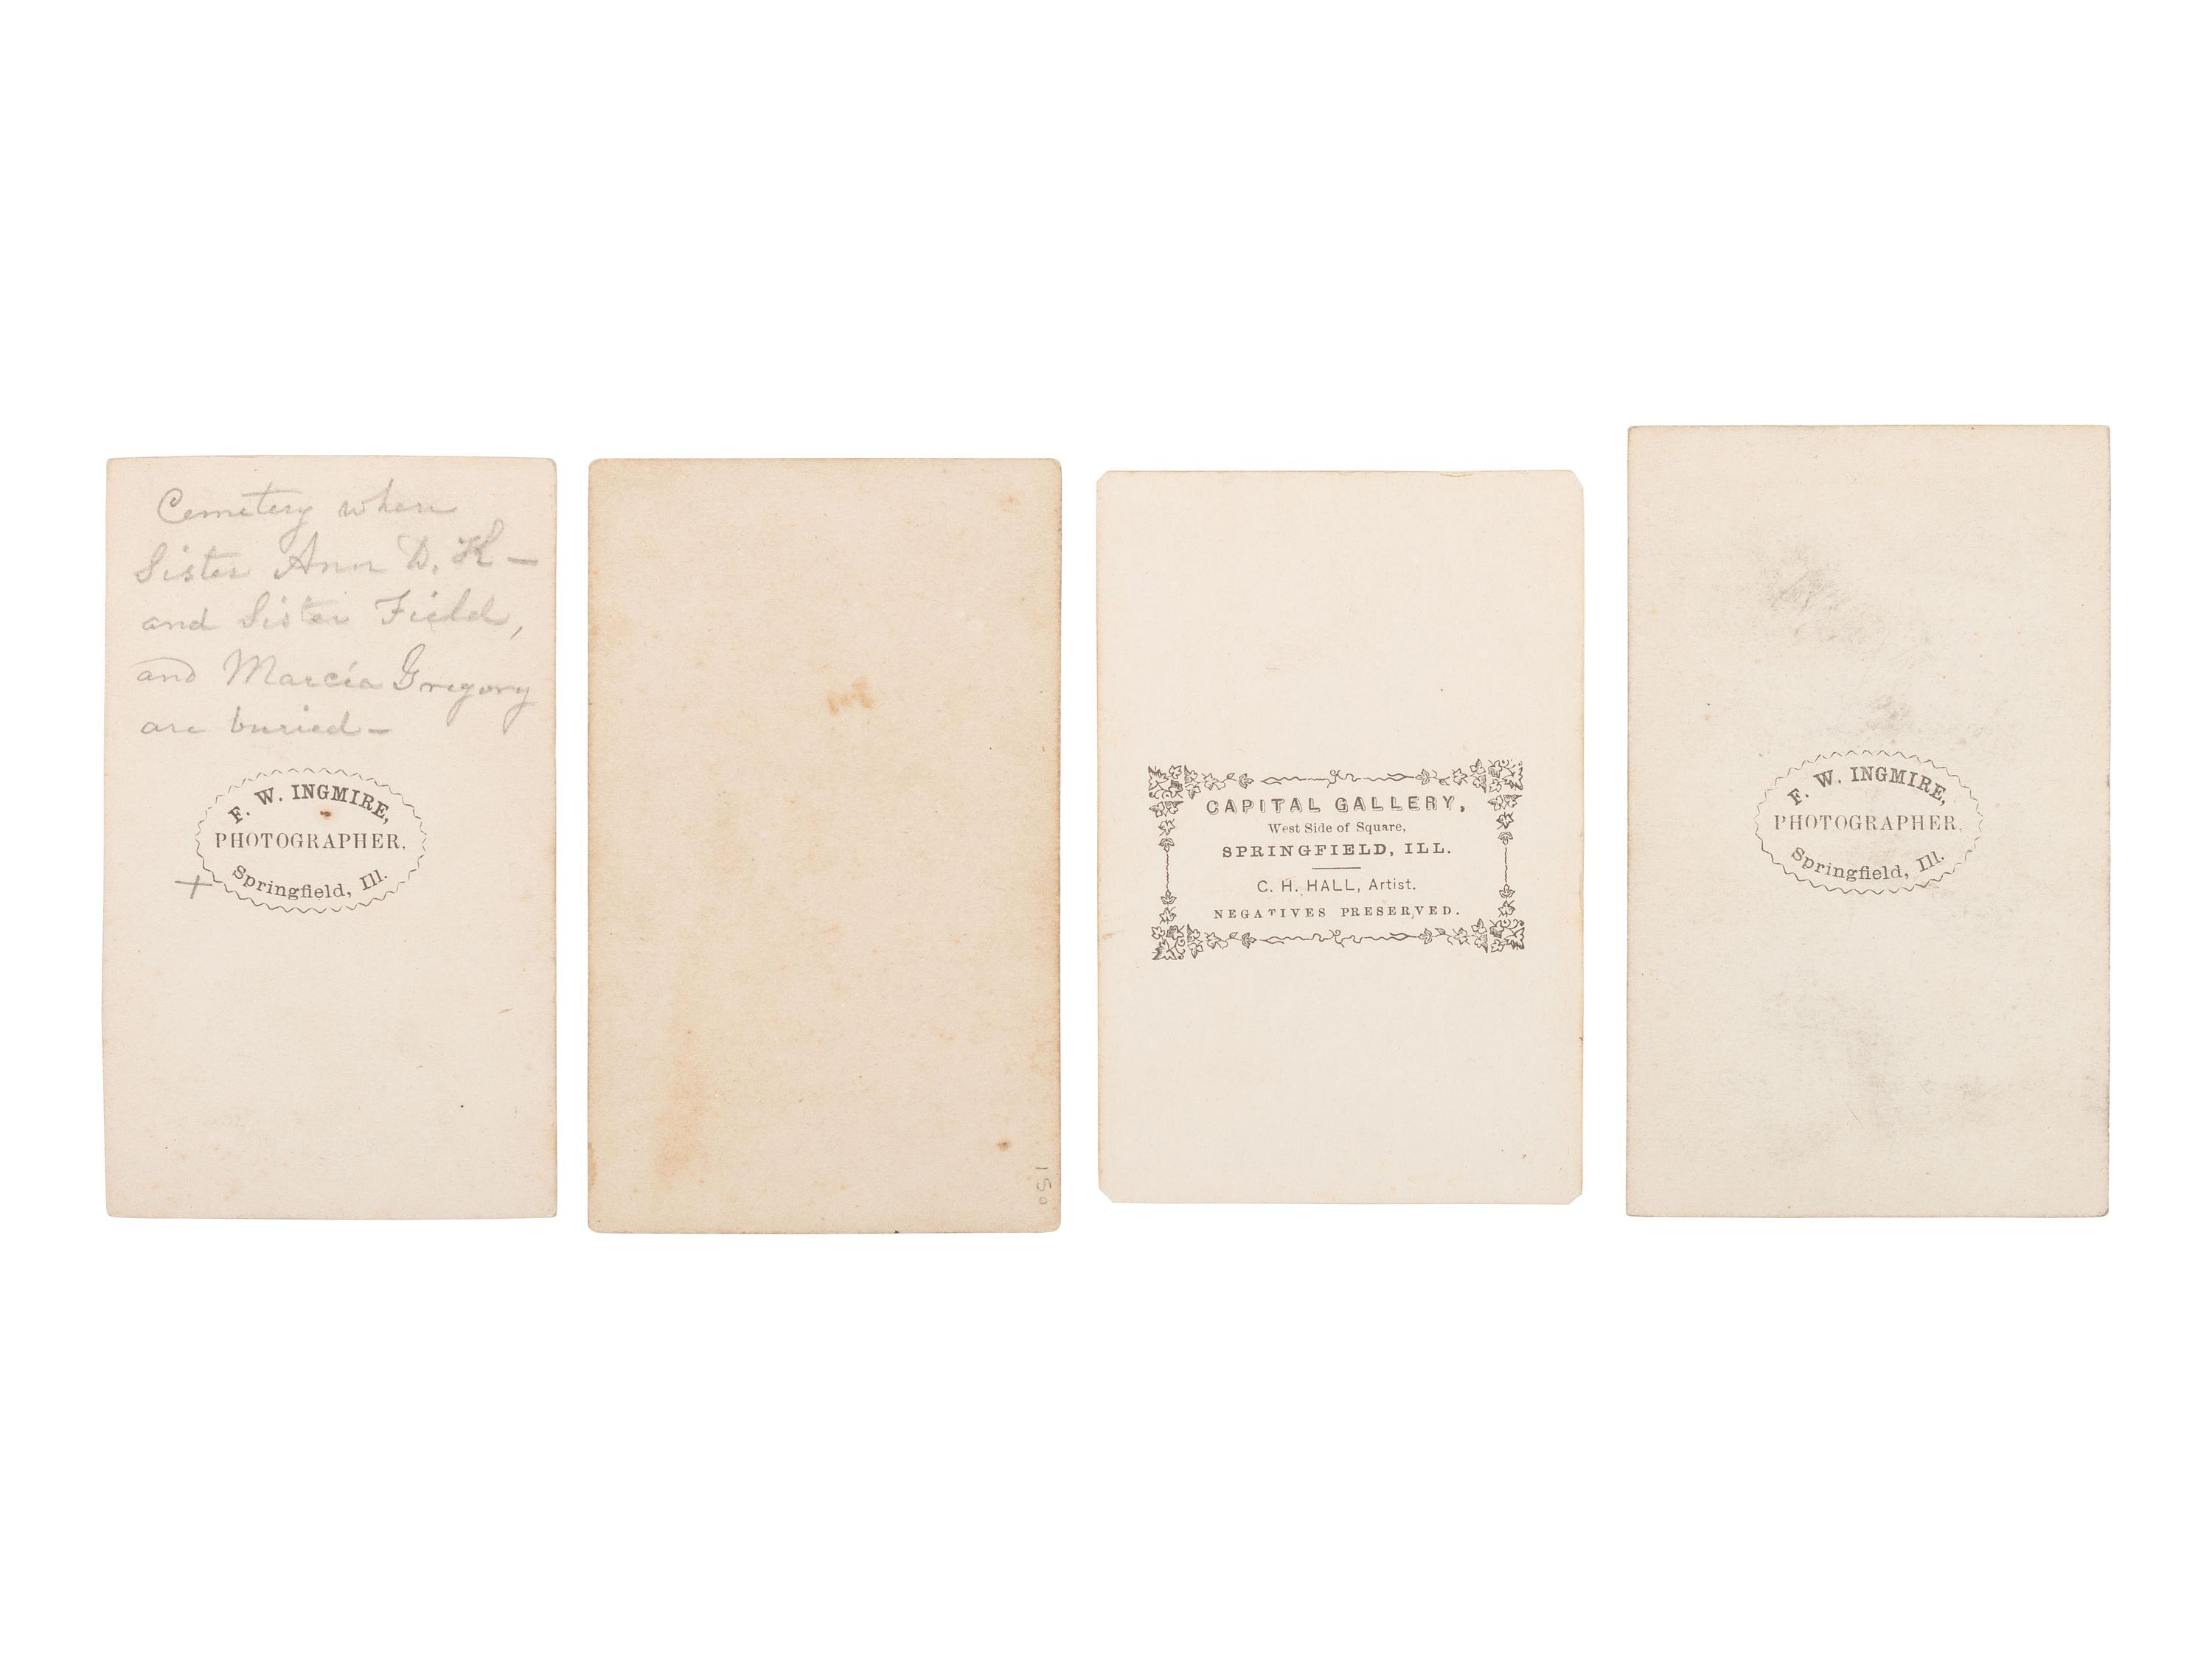 Cemetery where
Sister Ann D. K—
and Sister Field,
and Marcia Gregory
are buried—
F. W. INGMIRE,
PHOTOGRAPHER,
Springfield, Ill.
150
CAPITAL GALLERY,
West Side of Square,
SPRINGFIELD, ILL.
C. H. HALL, Artist.
NEGATIVES PRESERVED.
F. W. INGMIRE,
PHOTOGRAPHER,
Springfield, Ill.